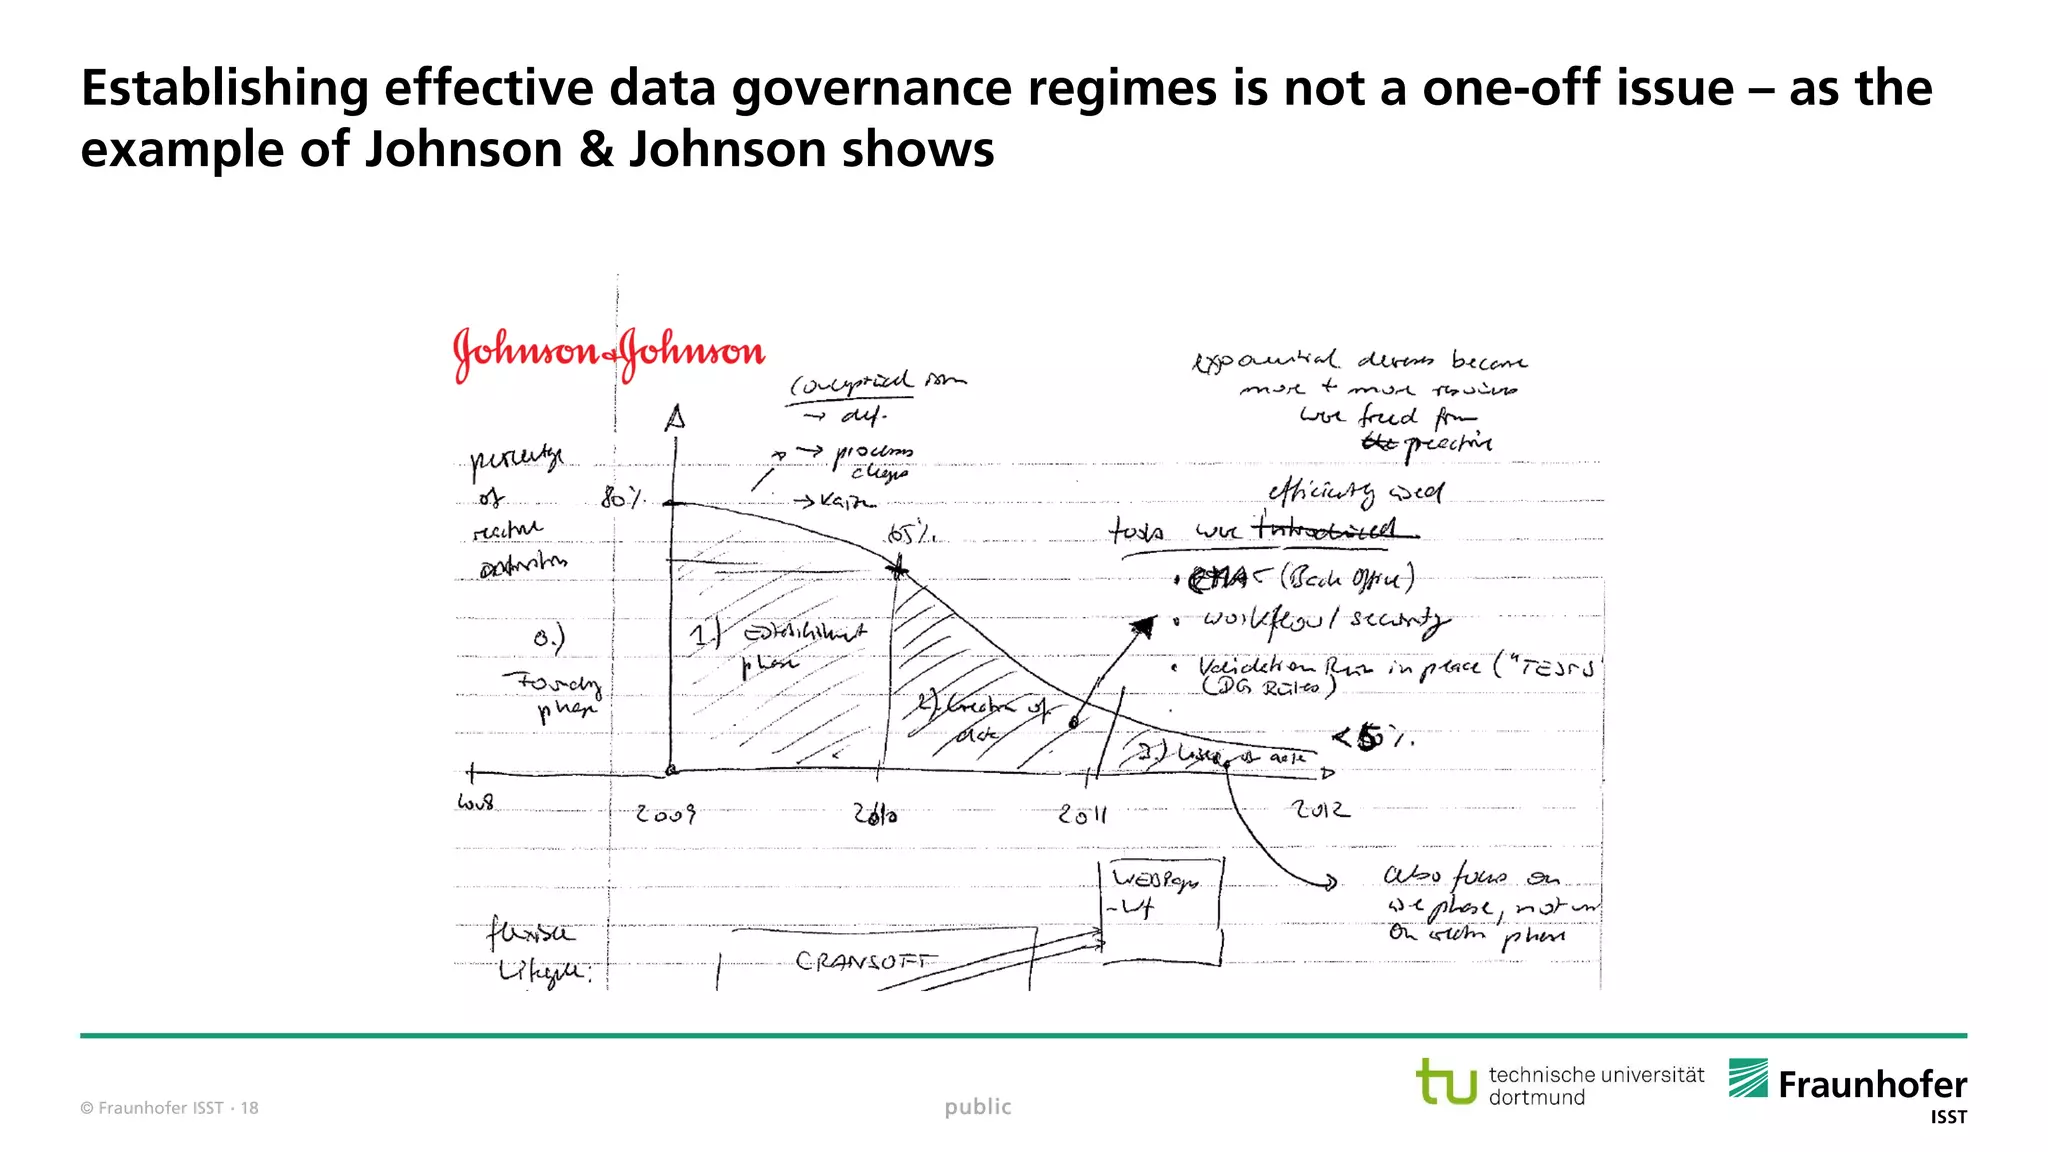 Establishing effective data governance regimes is not a one-off issue – as the
example of Johnson & Johnson shows
Johnson&Johnson
→ def.
→ process
exponential decrease became
more + more resources
were freed from
the preactive
percentage
of
reactive
80%
65%
efficiently used
tools were Introduced
(Back Office)
workflow / security
Validation Run in place ("TESTS
(DG Rules)
0.)
phase
1.) Establishment
phase
2.) Creation of
data
3.) of data
<5%.
2008
2009
2010
2011
2012
also focus on
use phase, not
on phase
WEBPages
-Wf
CRANSOFT
flexible
Lifecycle:
© Fraunhofer ISST · 18
public
tu technische universität
dortmund
Fraunhofer
ISST